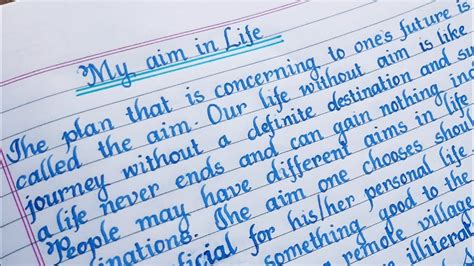 My aim in Life
The plan that is concerning to one's future is
called the aim. Our life without aim is like
journey without a definite destination and su
a life never ends and can gain nothing in
People may have different aims in life
inations. The aim one chooses shou
icial for his/her personal life
something good to the
remote village
illitera